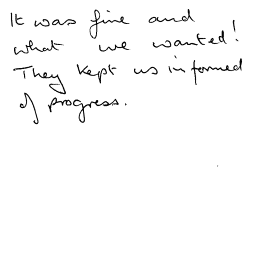 It was fine and
what we wanted!
They kept us informed
of progress.